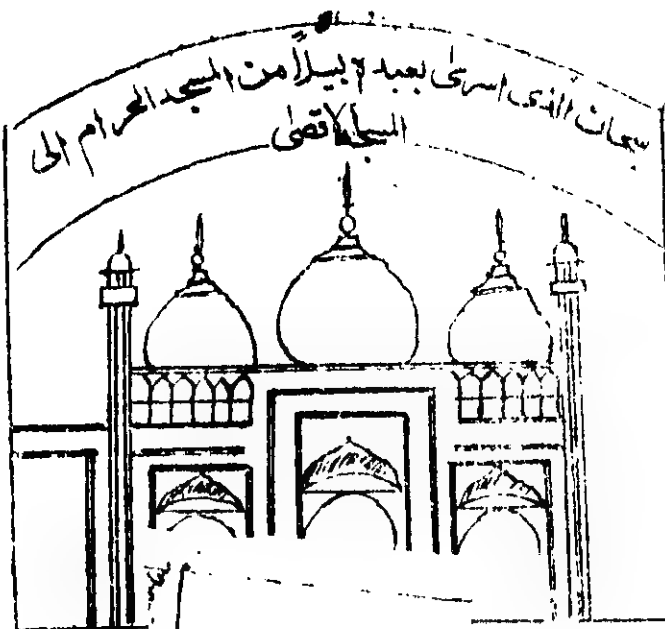 سبحان الذی اسرٰی بعبدہ لیلاً من المسجد الحرام الی
المسجد الاقصٰی